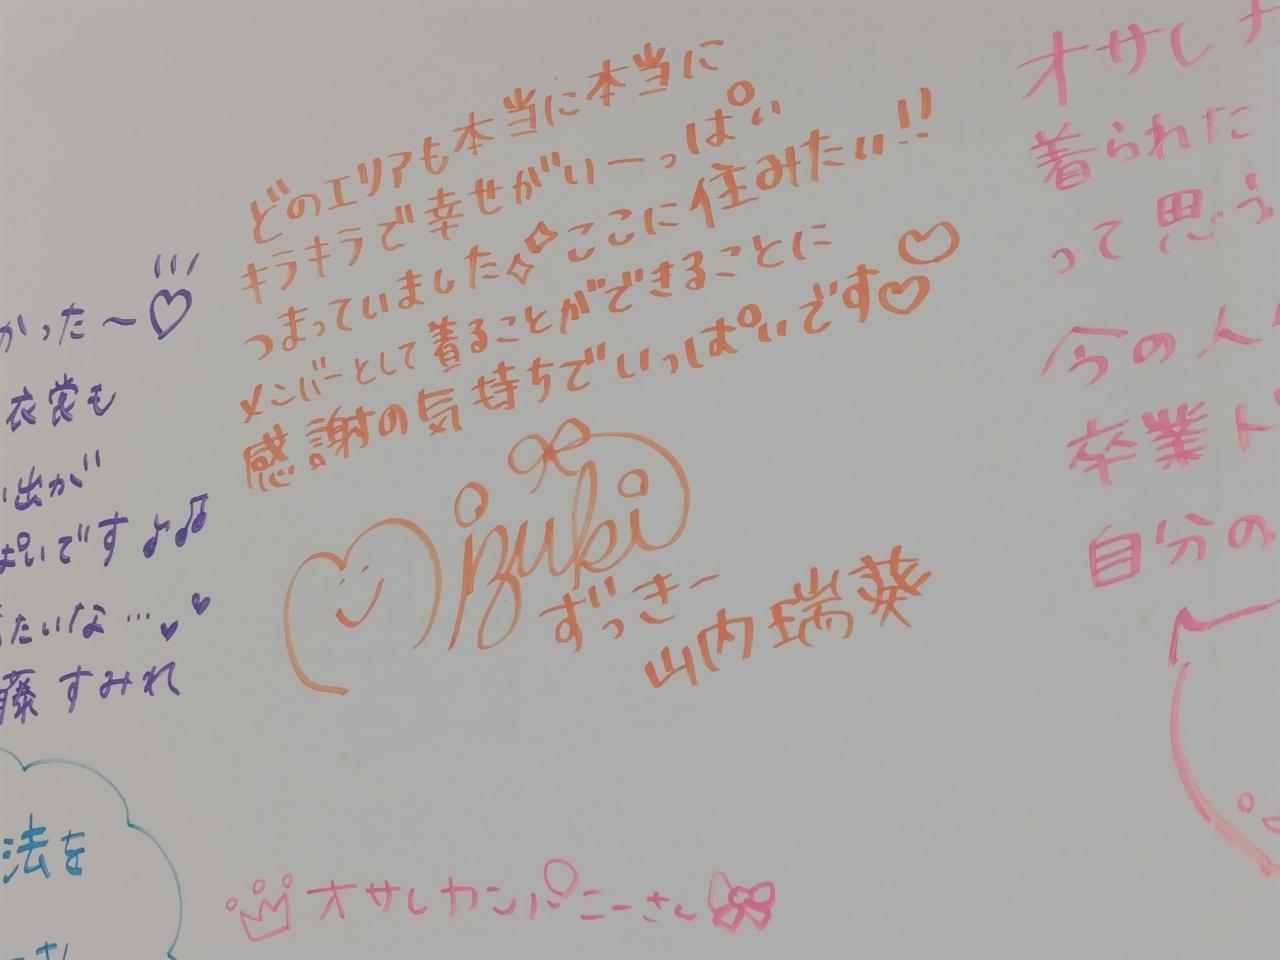 どのエリアも本当に本当に
キラキラで幸せがいーっぱい
つまっていました ここに住みたい!!
メンバーとして着ることができることに
感謝の気持ちでいっぱいです♡♡
Mizuki
ずっきー
山内瑞葵
かった〜♡
衣裳も
出が
ぱいです♪♫
たいな…
藤 すみれ
法を
オサレカンパニーさん
オサレカ
着られた
って思う
今の人
卒業ド
自分の